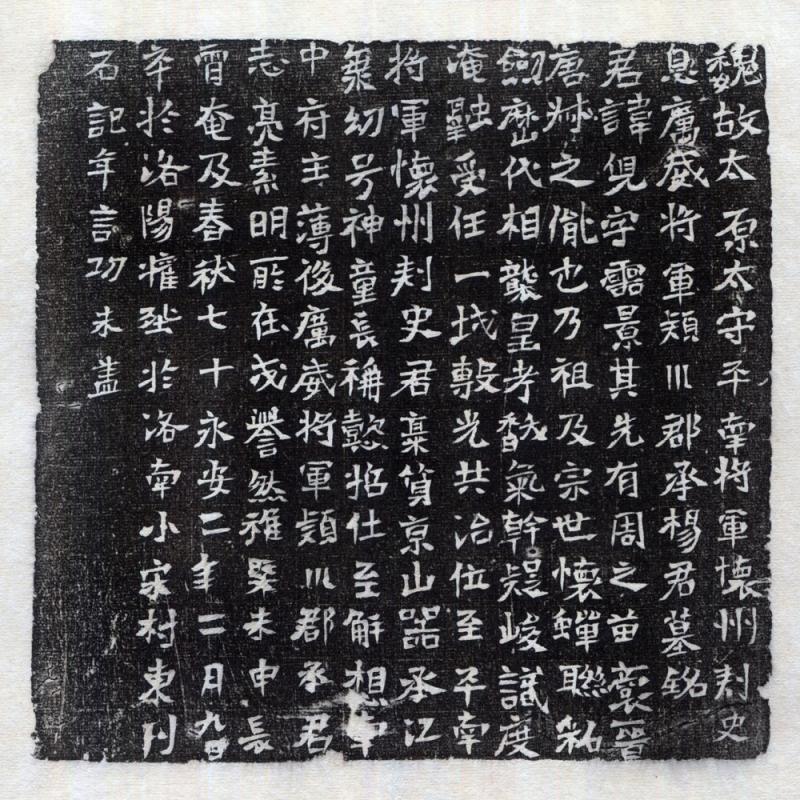 魏故太原太守平南將軍懷州刾史
息厲威將軍潁川郡丞楊君墓銘
君諱字景其先有周之苗裔晉
唐州之胤也乃祖及宗世懷蟬聯
歷代相襲皇考氣幹峻識度
淹融受任一城光共治位至平南
將軍懷州刾史君稟質京山器承江
幼号神童長稱懿招仕至解想南
中府主薄後厲威將軍潁川郡丞君
志亮素明所在茂譽然雅未申長
宵奄及春秋七十永安二年二月九日
卒於洛陽權於洛南小宋村東刊
石記年言功未盖